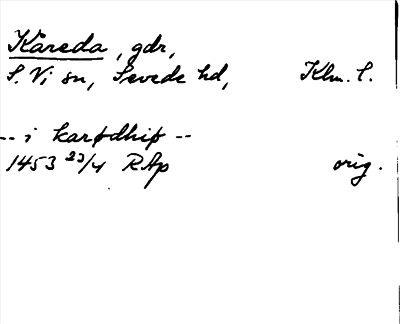 Kåreda, gdr,
S. Vi sn, Sevede hd, Klm. l.
-- i karþdhiþ --
1453 23/4 RAp orig.